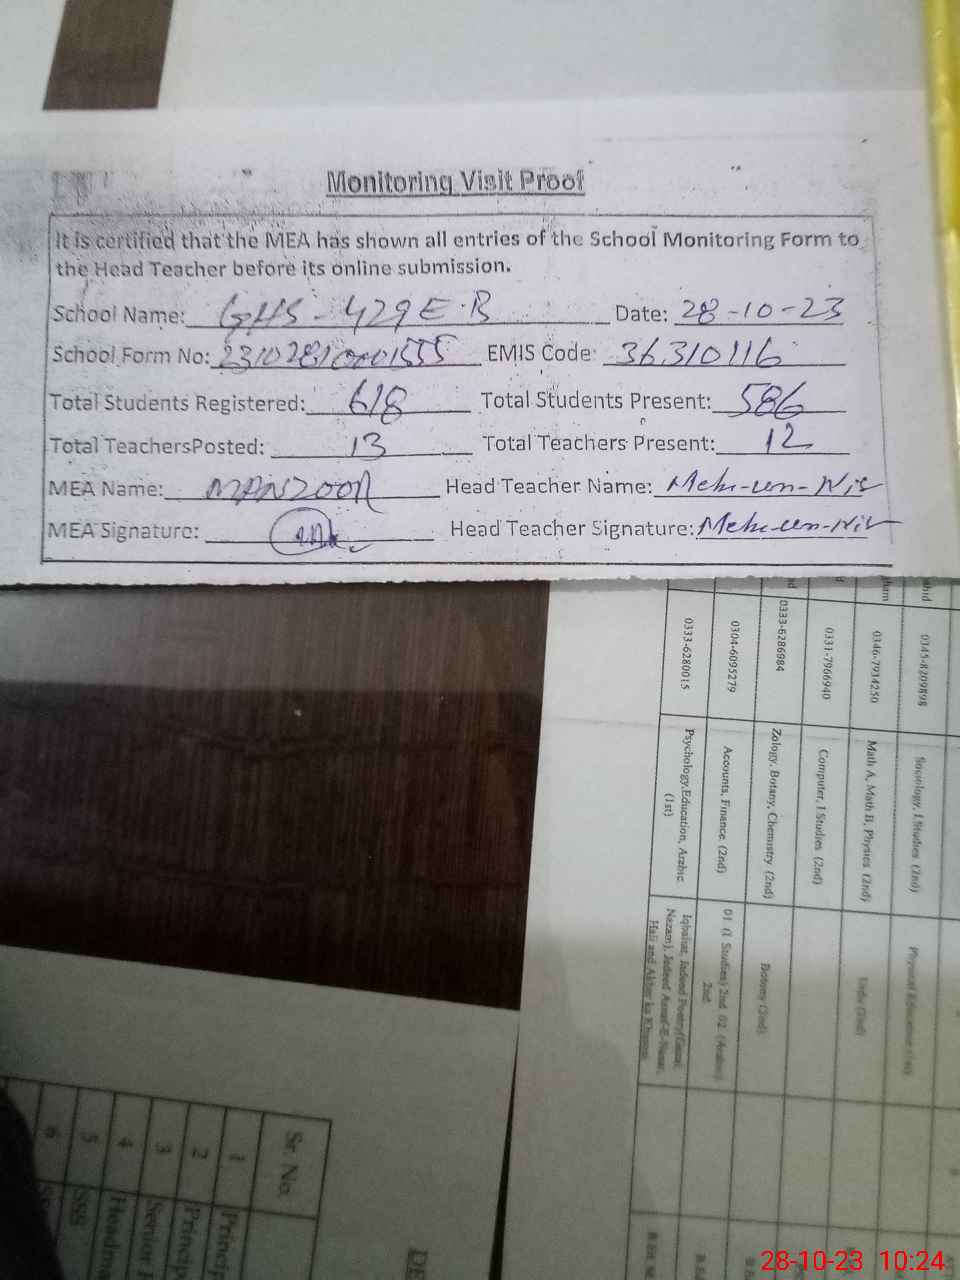 Monitoring Visit Proof
It is certified that the MEA has shown all entries of the School Monitoring Form to
the Head Teacher before its online submission.
School Name: GHS - 429 E.B Date: 28-10-23
School Form No: EMIS Code: 36310116
Total Students Registered: 618 Total Students Present: 586
Total TeachersPosted: 13 Total Teachers Present: 12
MEA Name: MANZOOR Head Teacher Name: Mehr-un-Nis
MEA Signature: Head Teacher Signature: Mehr-un-Nis
0345-8209898
Sociology, I.Studies (2nd)
Physical Education
0346-7934250
Math A, Math B, Physics (2nd)
Urdu (2nd)
0331-7966940
Computer, I Studies (2nd)
0333-6286984
Zology, Botany, Chemistry (2nd)
Botany (2nd)
0304-6095279
Accounts, Finance (2nd)
01 (I Studies) 2nd 02 (Arabic)
2nd
0333-6280015
Psychology,Education, Arabic
(1st)
Iqbaliat, Jadeed Poetry(Gazal,
Nazam), Jadeed
Hali and Akbar ka
Sr. No.
1 Princip
2 Princip
3 Senior
4 Headm
5 SSS
6
28-10-23 10:24